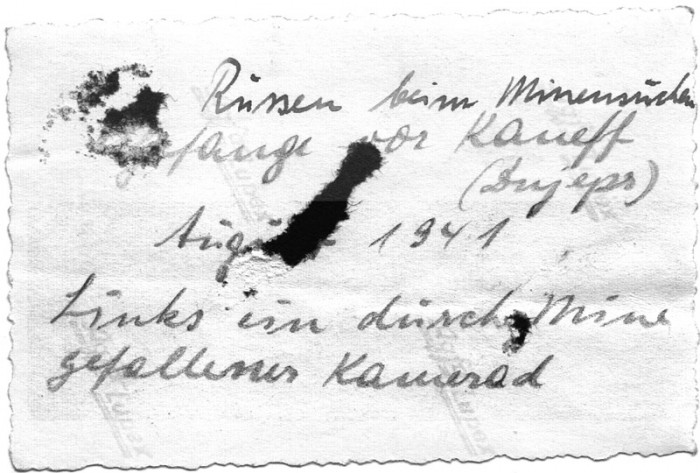 Russen beim Minensuchen
gefange vor Kaneff
(Dnjepr)
August 1941
Links ein durch Mine
gefallener Kamerad
Lupex